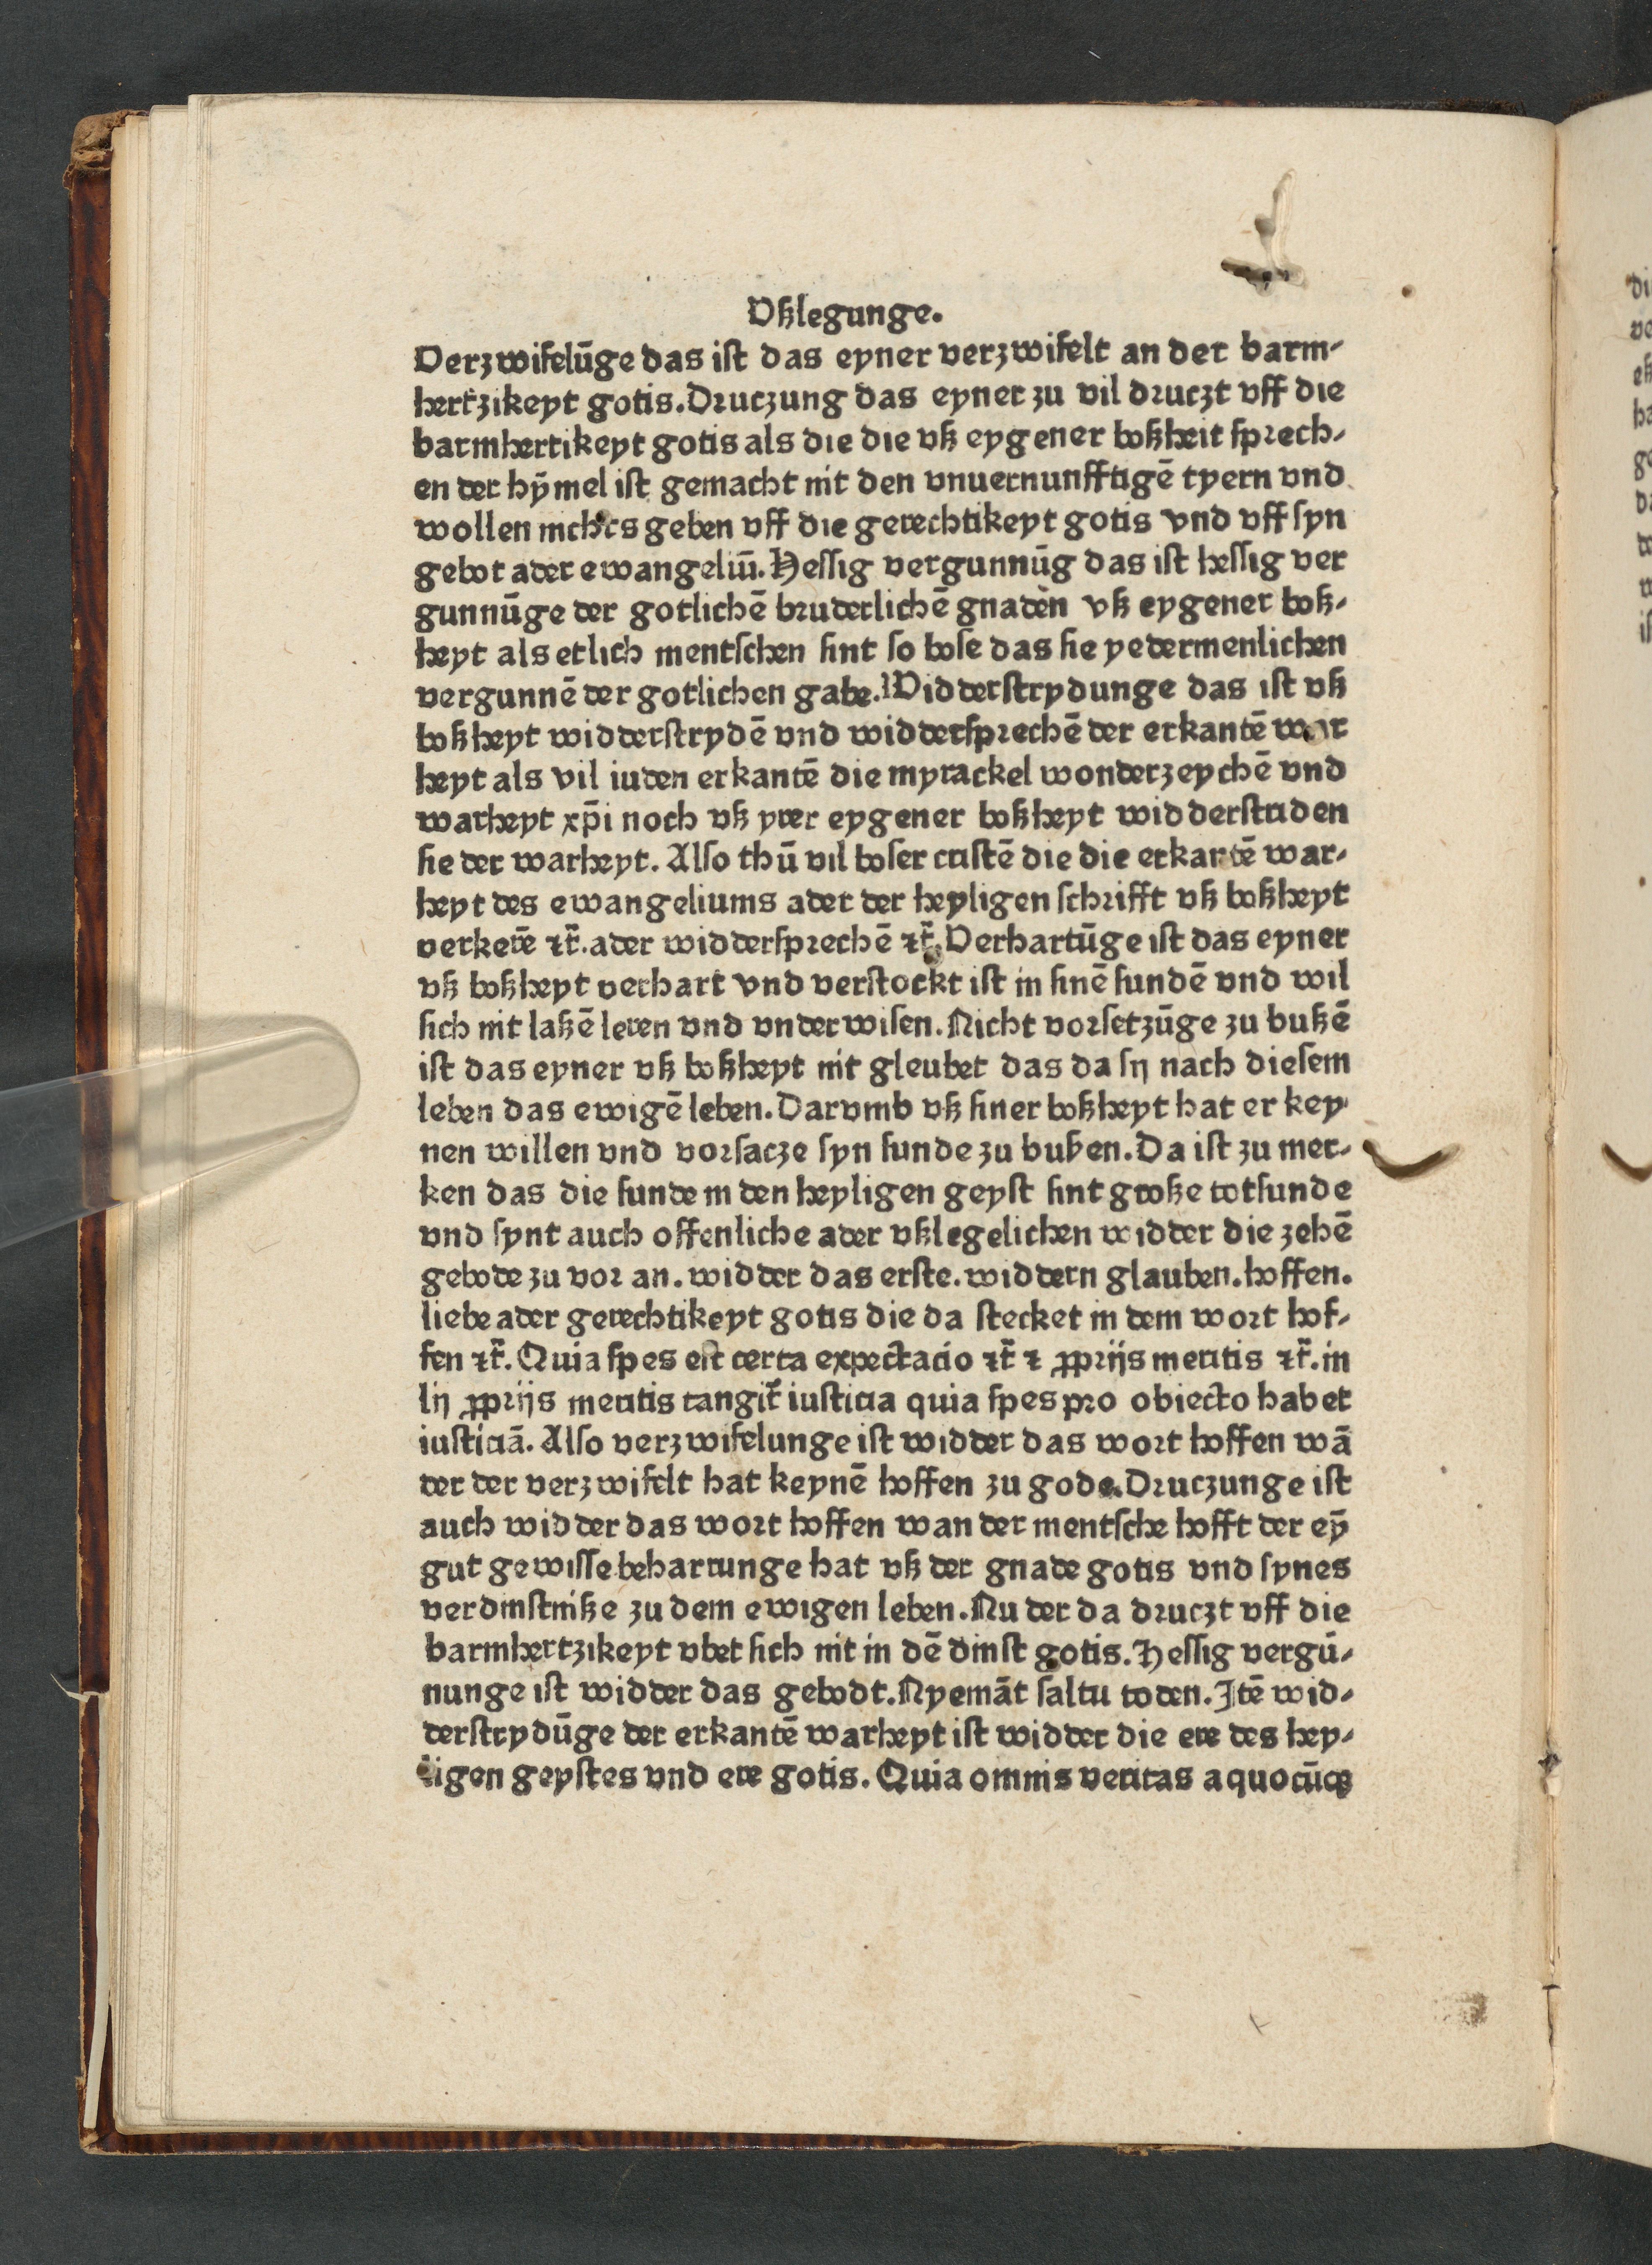 Vßlegunge.
Verzwifelūge das ist das eyner verzwifelt an der barm-
hertzikeyt gotis. Druczung das eyner zu vil druczt vff die
barmhertikeyt gotis als die die vß eygener boßheit sprech-
en der hȳmel ist gemacht nit den vnuernunfftigē tyern vnd
wollen nichts geben vff die gerechtikeyt gotis vnd vff syn
gebot ader ewangeliū. Hessig vergunnūg das ist hessig ver
gunnūge der gotlichē bruderlichē gnaden vß eygener boß-
heyt als etlich mentschen sint so bose das sie yedermenlichen
vergunnē der gotlichen gabe. Widderstrydunge das ist vß
boßheyt widderstrydē vnd widdersprechē der erkantē war
heyt als vil iuden erkantē die myrackel wonderzeychē vnd
warheyt xp̄i noch vß yrer eygener boßheyt widderstriden
sie der warheyt. Also thū vil boser cristē die die erkantē war-
heyt des ewangeliums ader der heyligen schrifft vß boßheyt
verkerē ⁊c̄. ader widdersprechē ⁊c̄. Verhartūge ist das eyner
vß boßheyt verhart vnd verstockt ist in sinē sundē vnd wil
sich nit laßē leren vnd vnderwisen. Nicht vorsetzūge zu bußē
ist das eyner vß boßheyt nit gleubet das da sy nach diesem
leben das ewigē leben. Darvmb vß siner boßheyt hat er key
nen willen vnd vorsacze syn sunde zu bußen. Da ist zu mer-
ken das die sunde in den heyligen geyst sint große totsunde
vnd synt auch offenliche ader vßlegelichen widder die zehē
gebode zu vor an. widder das erste. widdern glauben. hoffen.
liebe ader gerechtikeyt gotis die da stecket in dem wort hof-
fen ⁊c̄. Quia spes est certa expectacio ⁊c̄ ⁊ ꝓprijs meritis ⁊c̄. in
lij ꝓprijs meritis tangit̄ iusticia quia spes pro obiecto habet
iusticiā. Also verzwifelunge ist widder das wort hoffen wā
der der verzwifelt hat keynē hoffen zu gode. Druczunge ist
auch widder das wort hoffen wan der mentsche hofft der eȳ
gut gewisse behartunge hat vß der gnade gotis vnd synes
verdinstniße zu dem ewigen leben. Nu der da druczt vff die
barmhertzikeyt vbet sich nit in dē dinst gotis. Hessig vergū-
nunge ist widder das gebodt. Nyemāt saltu toden. Itē wid-
derstrydūge der erkantē warheyt ist widder die ere des hey-
ligen geystes vnd ere gotis. Quia omnis veritas a quocūqꝫ